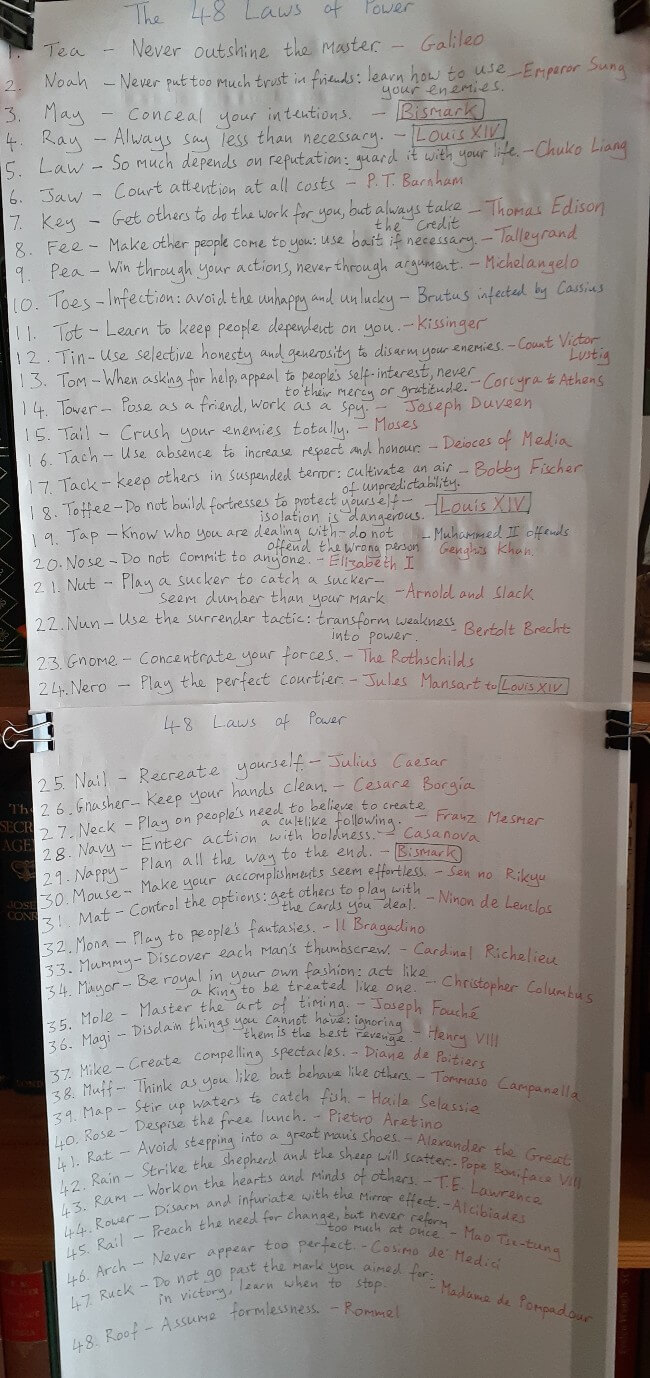 The 48 Laws of Power
1. Tea – Never outshine the master. – Galileo
2. Noah – Never put too much trust in friends: learn how to use – Emperor Sung
your enemies.
3. May – Conceal your intentions. – Bismark
4. Ray – Always say less than necessary. – Louis XIV
5. Law – So much depends on reputation: guard it with your life. – Chuko Liang
6. Jaw – Court attention at all costs – P.T. Barnham
7. Key – Get others to do the work for you, but always take – Thomas Edison
the credit
8. Fee – Make other people come to you: use bait if necessary. – Talleyrand
9. Pea – Win through your actions, never through argument. – Michelangelo
10. Toes – Infection: avoid the unhappy and unlucky – Brutus infected by Cassius
11. Tot – Learn to keep people dependent on you. – Kissinger
12. Tin – Use selective honesty and generosity to disarm your enemies. – Count Victor
Lustig
13. Tom – When asking for help, appeal to people's self-interest, never
to their mercy or gratitude. – Corcyra to Athens
14. Tower – Pose as a friend, work as a spy. – Joseph Duveen
15. Tail – Crush your enemies totally. – Moses
16. Tach – Use absence to increase respect and honour. – Deioces of Media
17. Tack – keep others in suspended terror: cultivate an air – Bobby Fischer
of unpredictability.
18. Toffee – Do not build fortresses to protect yourself –
isolation is dangerous. – Louis XIV
19. Tap – Know who you are dealing with – do not – Muhammed II offends
offend the wrong person Genghis Khan.
20. Nose – Do not commit to anyone. – Elizabeth I
21. Nut – Play a sucker to catch a sucker –
seem dumber than your mark – Arnold and Slack
22. Nun – Use the surrender tactic: transform weakness
into power. – Bertolt Brecht
23. Gnome – Concentrate your forces. – The Rothschilds
24. Nero – Play the perfect courtier. – Jules Mansart to Louis XIV
48 Laws of Power
25. Nail – Recreate yourself. – Julius Caesar
26. Gnasher – Keep your hands clean. – Cesare Borgia
27. Neck – Play on people's need to believe to create
a cultlike following. – Franz Mesmer
28. Navy – Enter action with boldness. – Casanova
29. Nappy – Plan all the way to the end. – Bismark
30. Mouse – Make your accomplishments seem effortless. – Sen no Rikyu
31. Mat – Control the options: get others to play with
the cards you deal. – Ninon de Lenclos
32. Mona – Play to people's fantasies. – Il Bragadino
33. Mummy – Discover each man's thumbscrew. – Cardinal Richelieu
34. Mayor – Be royal in your own fashion: act like
a king to be treated like one. – Christopher Columbus
35. Mole – Master the art of timing. – Joseph Fouché
36. Magi – Disdain things you cannot have: ignoring
them is the best revenge. – Henry VIII
37. Mike – Create compelling spectacles. – Diane de Poitiers
38. Muff – Think as you like but behave like others. – Tommaso Campanella
39. Map – Stir up waters to catch fish. – Haile Selassie
40. Rose – Despise the free lunch. – Pietro Aretino
41. Rat – Avoid stepping into a great man's shoes. – Alexander the Great
42. Rain – Strike the shepherd and the sheep will scatter. – Pope Boniface VIII
43. Ram – Work on the hearts and minds of others. – T.E. Lawrence
44. Rower – Disarm and infuriate with the mirror effect. – Alcibiades
45. Rail – Preach the need for change, but never reform
too much at once. – Mao Tse-tung
46. Arch – Never appear too perfect. – Cosimo de' Medici
47. Ruck – Do not go past the mark you aimed for:
in victory, learn when to stop. – Madame de Pompadour
48. Roof – Assume formlessness. – Rommel